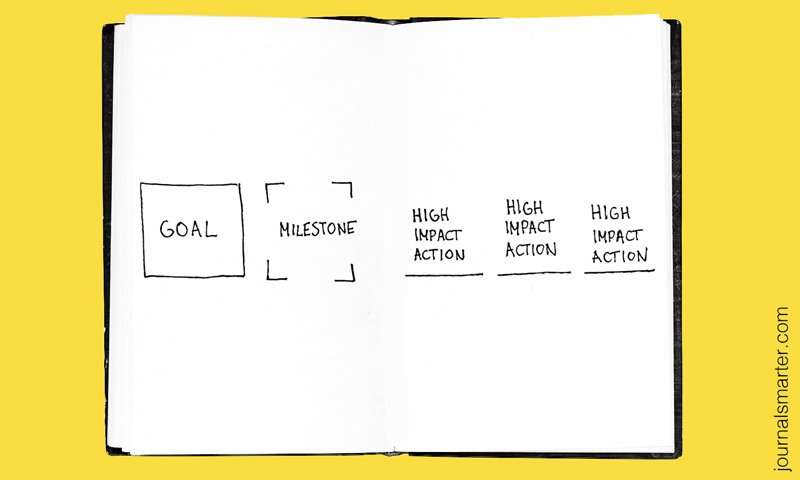 GOAL
MILESTONE
HIGH
IMPACT
ACTION
HIGH
IMPACT
ACTION
HIGH
IMPACT
ACTION
journalsmarter.com